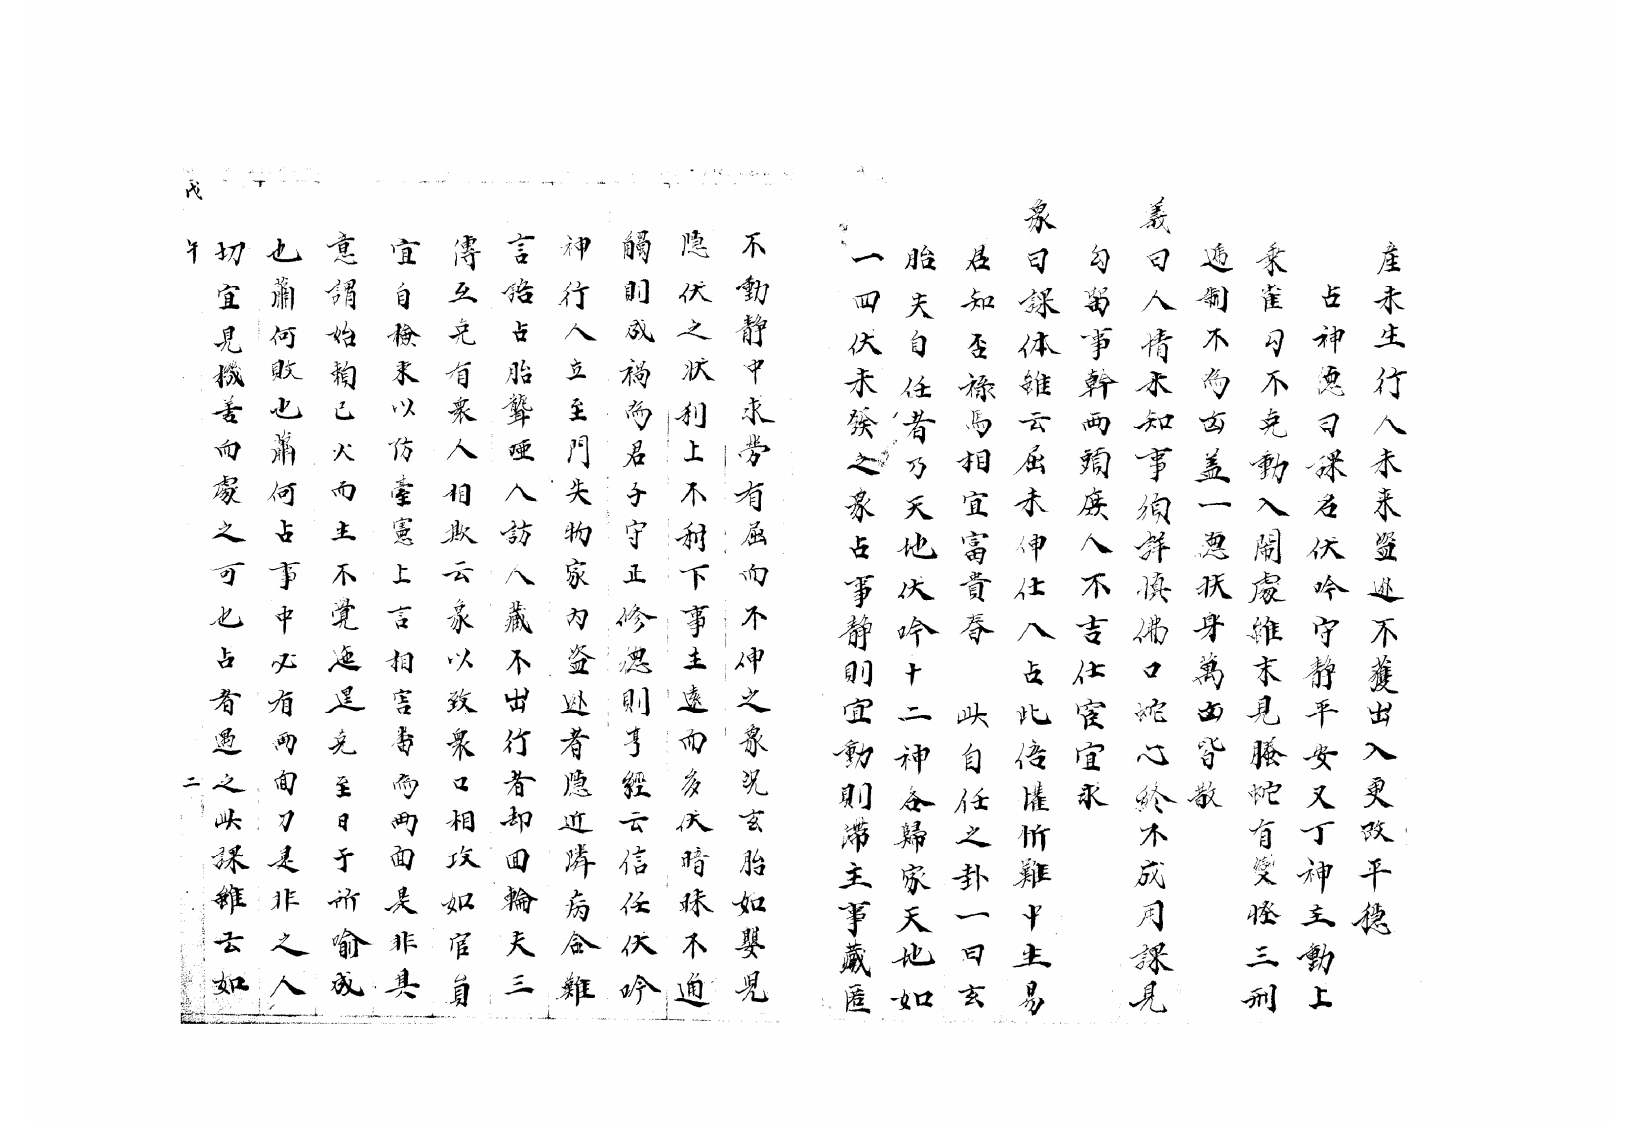 產未生行人未来盜逃不獲出入更改平穩
占神德曰課名伏吟守静平安又丁神主動上
乘雀勾不克動入閙處雖末見螣蛇有變怪三刑
遞制不為凶盖一德扶身萬凶皆散
義曰人情未知事須詳慎佛口蛇心終不成用課見
勾留事幹兩頭庶人不吉仕宦宜求
象曰課体雖云屈未伸仕人占此倍懽忻難中生易
君知否祿馬相宜富貴春 此自任之卦一曰玄
胎夫自任者乃天地伏吟十二神各歸家天地如
一四伏未發之象占事静則宜動則滞主事藏匿
不動静中求勞有屈而不伸之象況玄胎如嬰児
隐伏之狀利上不利下事主遠而多伏暗昧不通
觸則成禍而君子守正修德則亨經云信任伏吟
神行人立至門失物家內盜逃者隐近隣病合難
言殆占胎聾啞人訪人藏不出行者却回輪夫三
傳互克有衆人相欺云象以致衆口相攻如官員
宜自檢束以防臺憲上言相害畨而兩面是非其
意謂始賴已火而主不覺迤邐克至日于所喻成
也蕭何敗也蕭何占事中必有兩面刀是非之人
切宜見機善而處之可也占者遇之此課雖云如
戊午 二